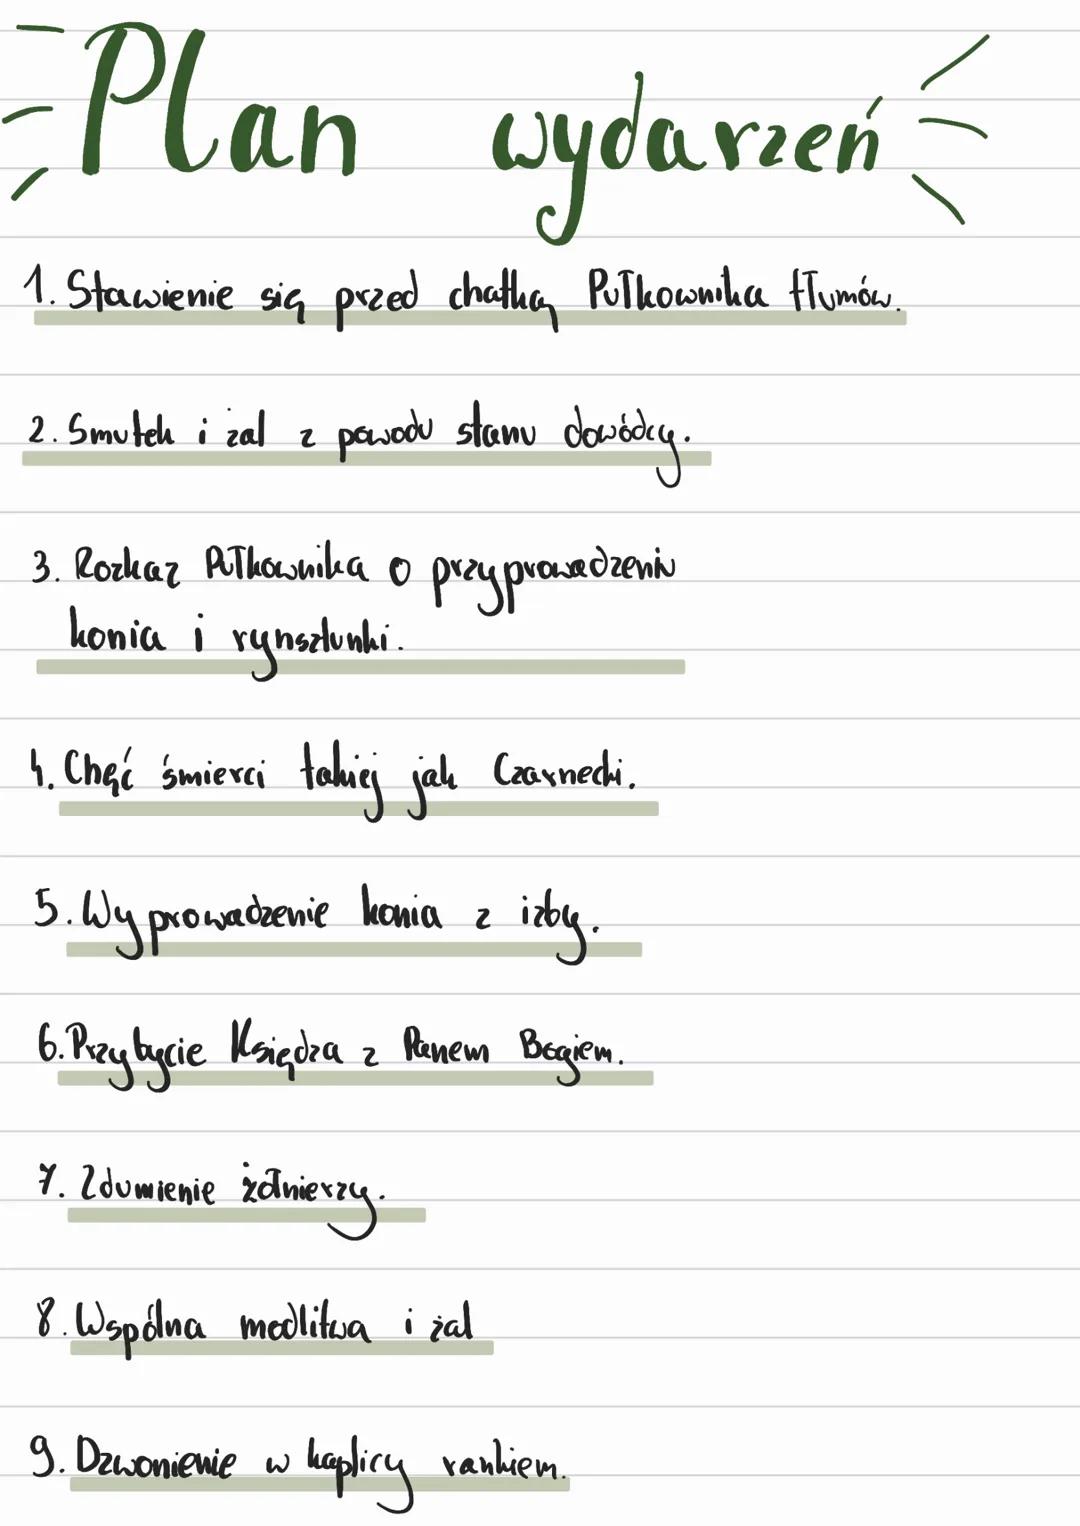 Plan wydarzeń
1. Stawienie się przed chatką Pułkownika tłumów.
2. Smutek i żal z powodu stanu dowódcy.
3. Rozkaz Pułkownika o przyprowadzeniu
konia i rynsztunki.
4. Chęć śmierci takiej jak Czarnecki.
5. Wyprowadzenie konia z izby.
6. Przybycie Księdza z Panem Bogiem.
7. Zdumienie żołnierzy.
8. Wspólna modlitwa i żal
9. Dzwonienie w kaplicy rankiem.